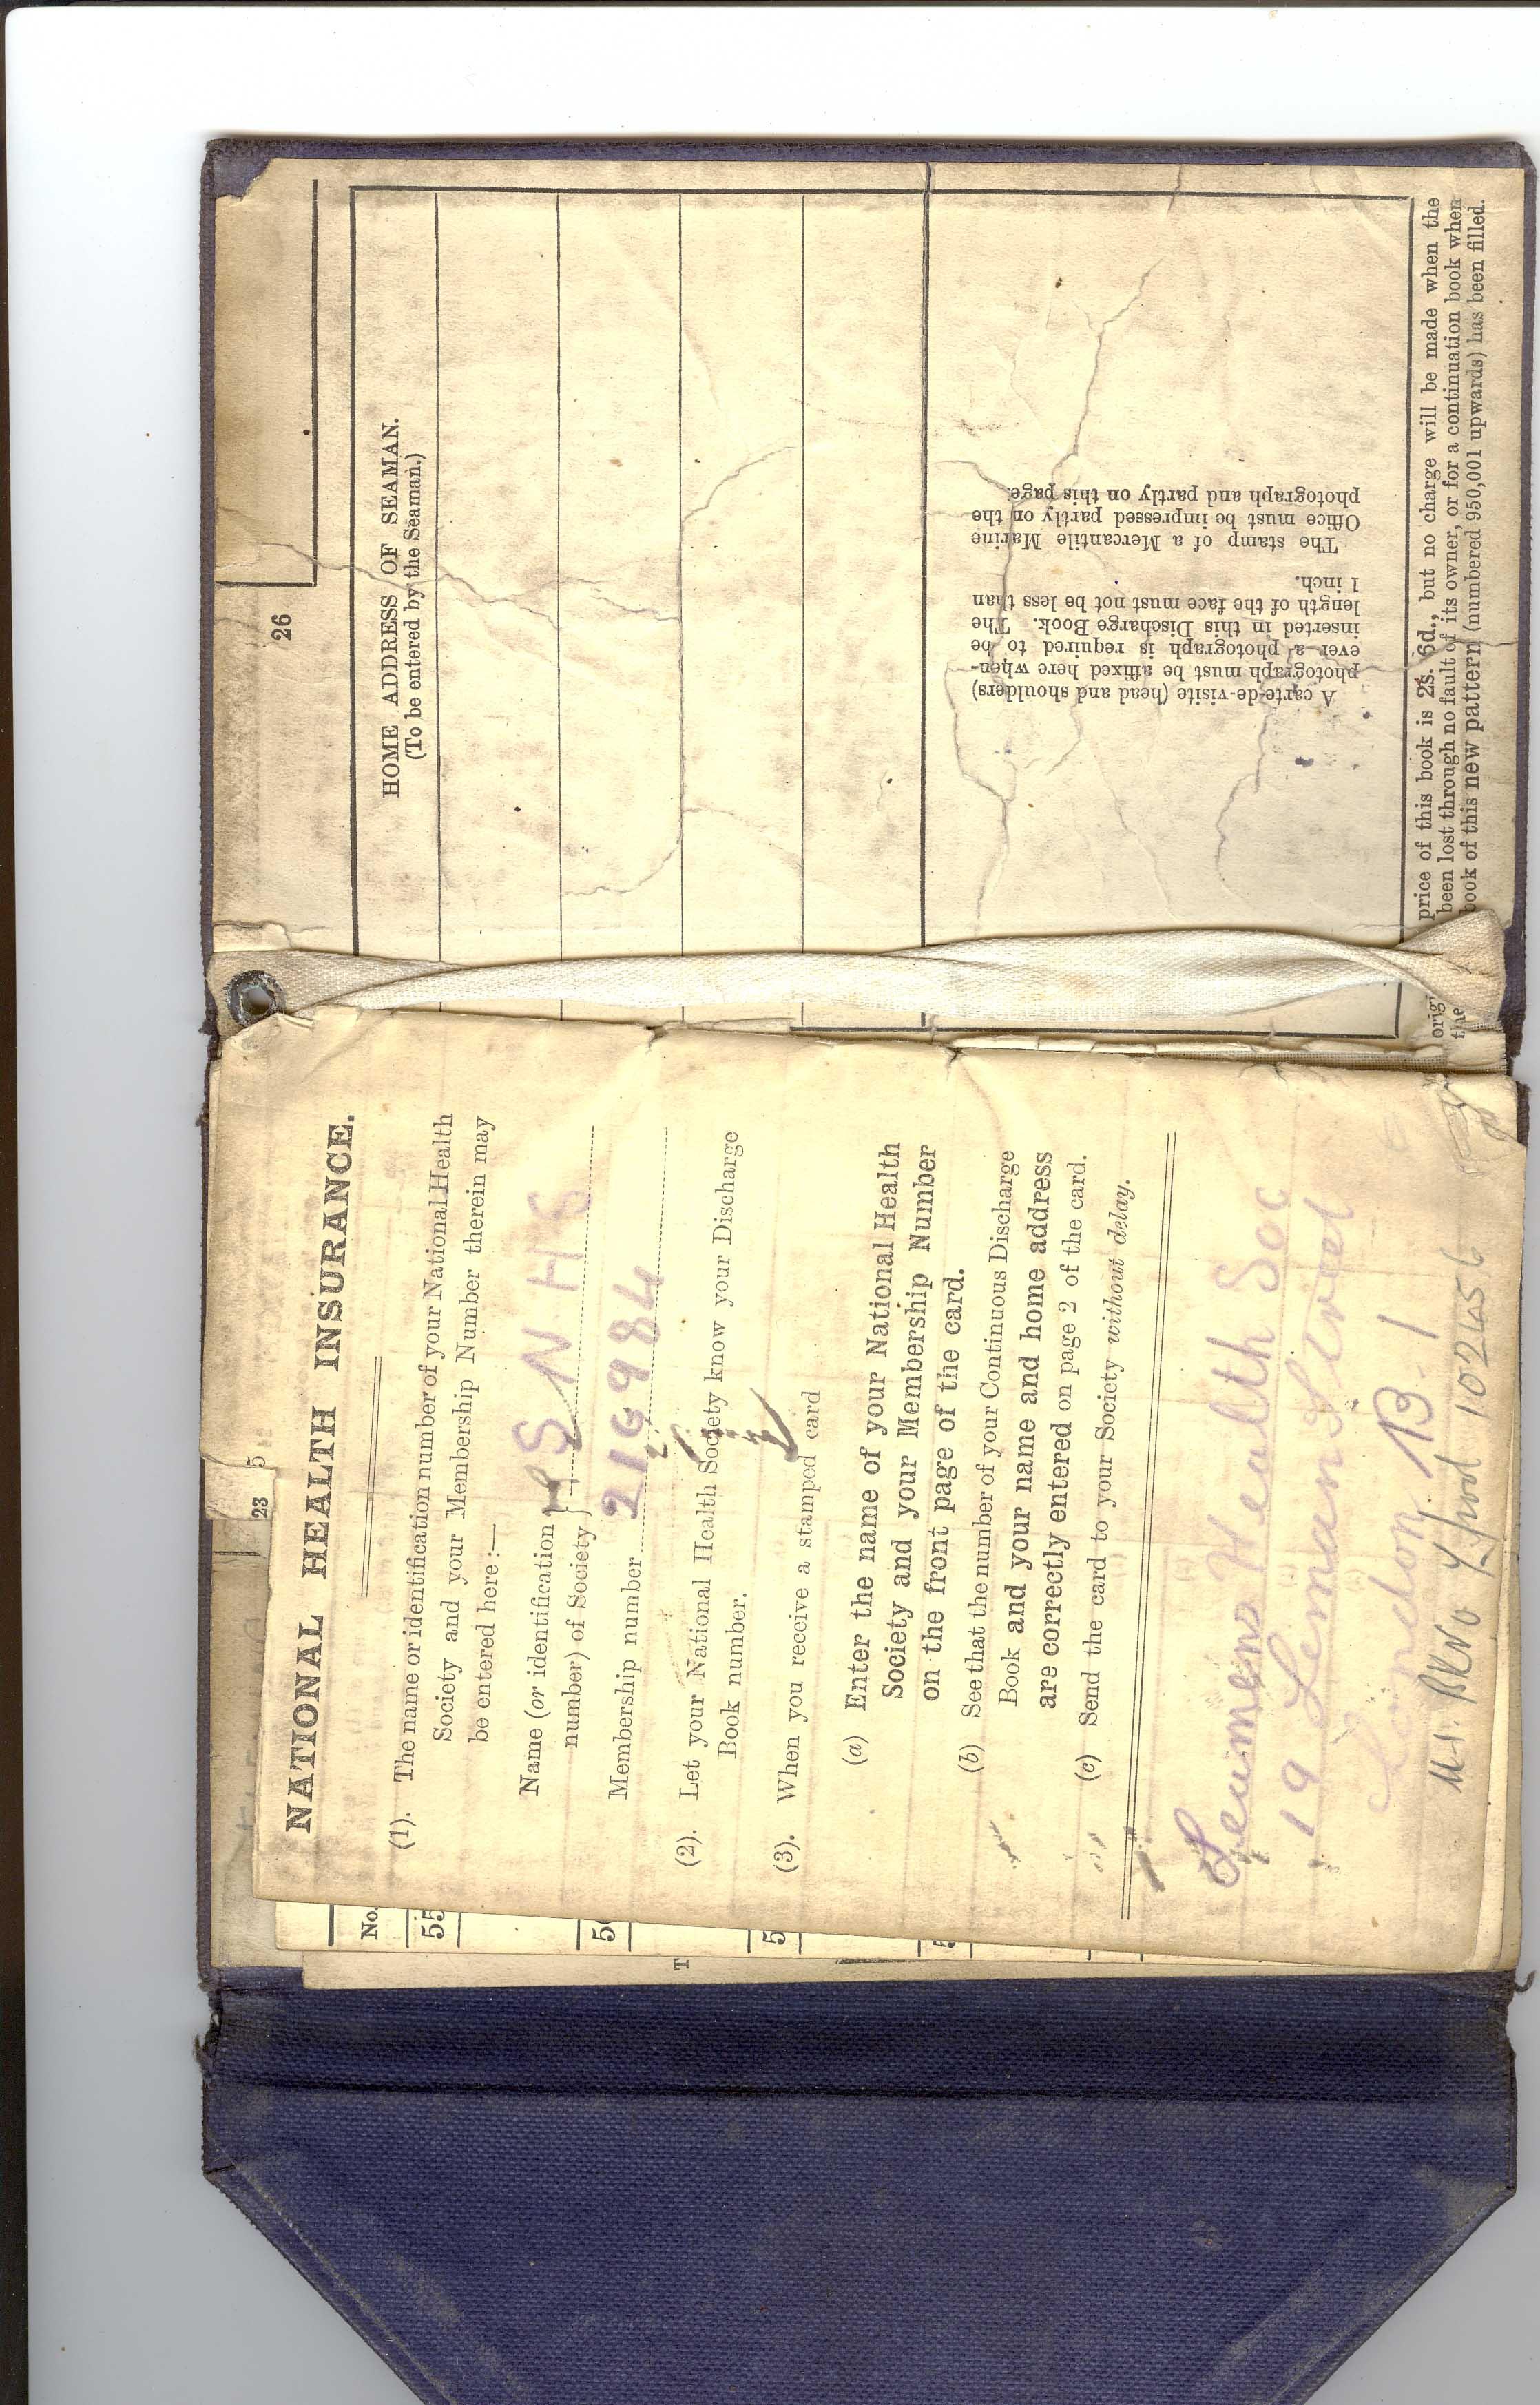 23
5
NATIONAL HEALTH INSURANCE.
(1). The name or identification number of your National Health
Society and your Membership Number therein may
be entered here :—
Name (or identification
number) of Society } S N H S
Membership number 216984
(2). Let your National Health Society know your Discharge
Book number.
(3). When you receive a stamped card
(a) Enter the name of your National Health
Society and your Membership Number
on the front page of the card.
(b) See that the number of your Continuous Discharge
Book and your name and home address
are correctly entered on page 2 of the card.
(c) Send the card to your Society without delay.
Seamens Health Soc
19 Leman Street
London B.1
BK No L/pool 102456
No.
55
T
26
HOME ADDRESS OF SEAMAN.
(To be entered by the Seaman.)
A carte-de-visite (head and shoulders)
photograph must be affixed here when-
ever a photograph is required to be
inserted in this Discharge Book. The
length of the face must not be less than
1 inch.
The stamp of a Mercantile Marine
Office must be impressed partly on the
photograph and partly on this page.
price of this book is 2s. 6d., but no charge will be made when the
orig been lost through no fault of its owner, or for a continuation book when
the book of this new pattern (numbered 950,001 upwards) has been filled.